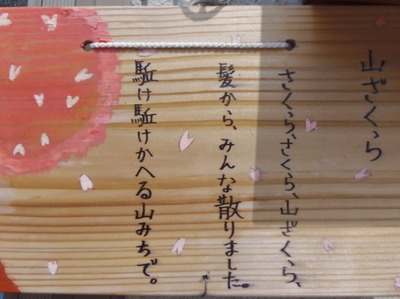 山ざくら
さくら、さくら、山ざくら、
髪から、みんな散りました。
駈け駈けかへる山みちで。